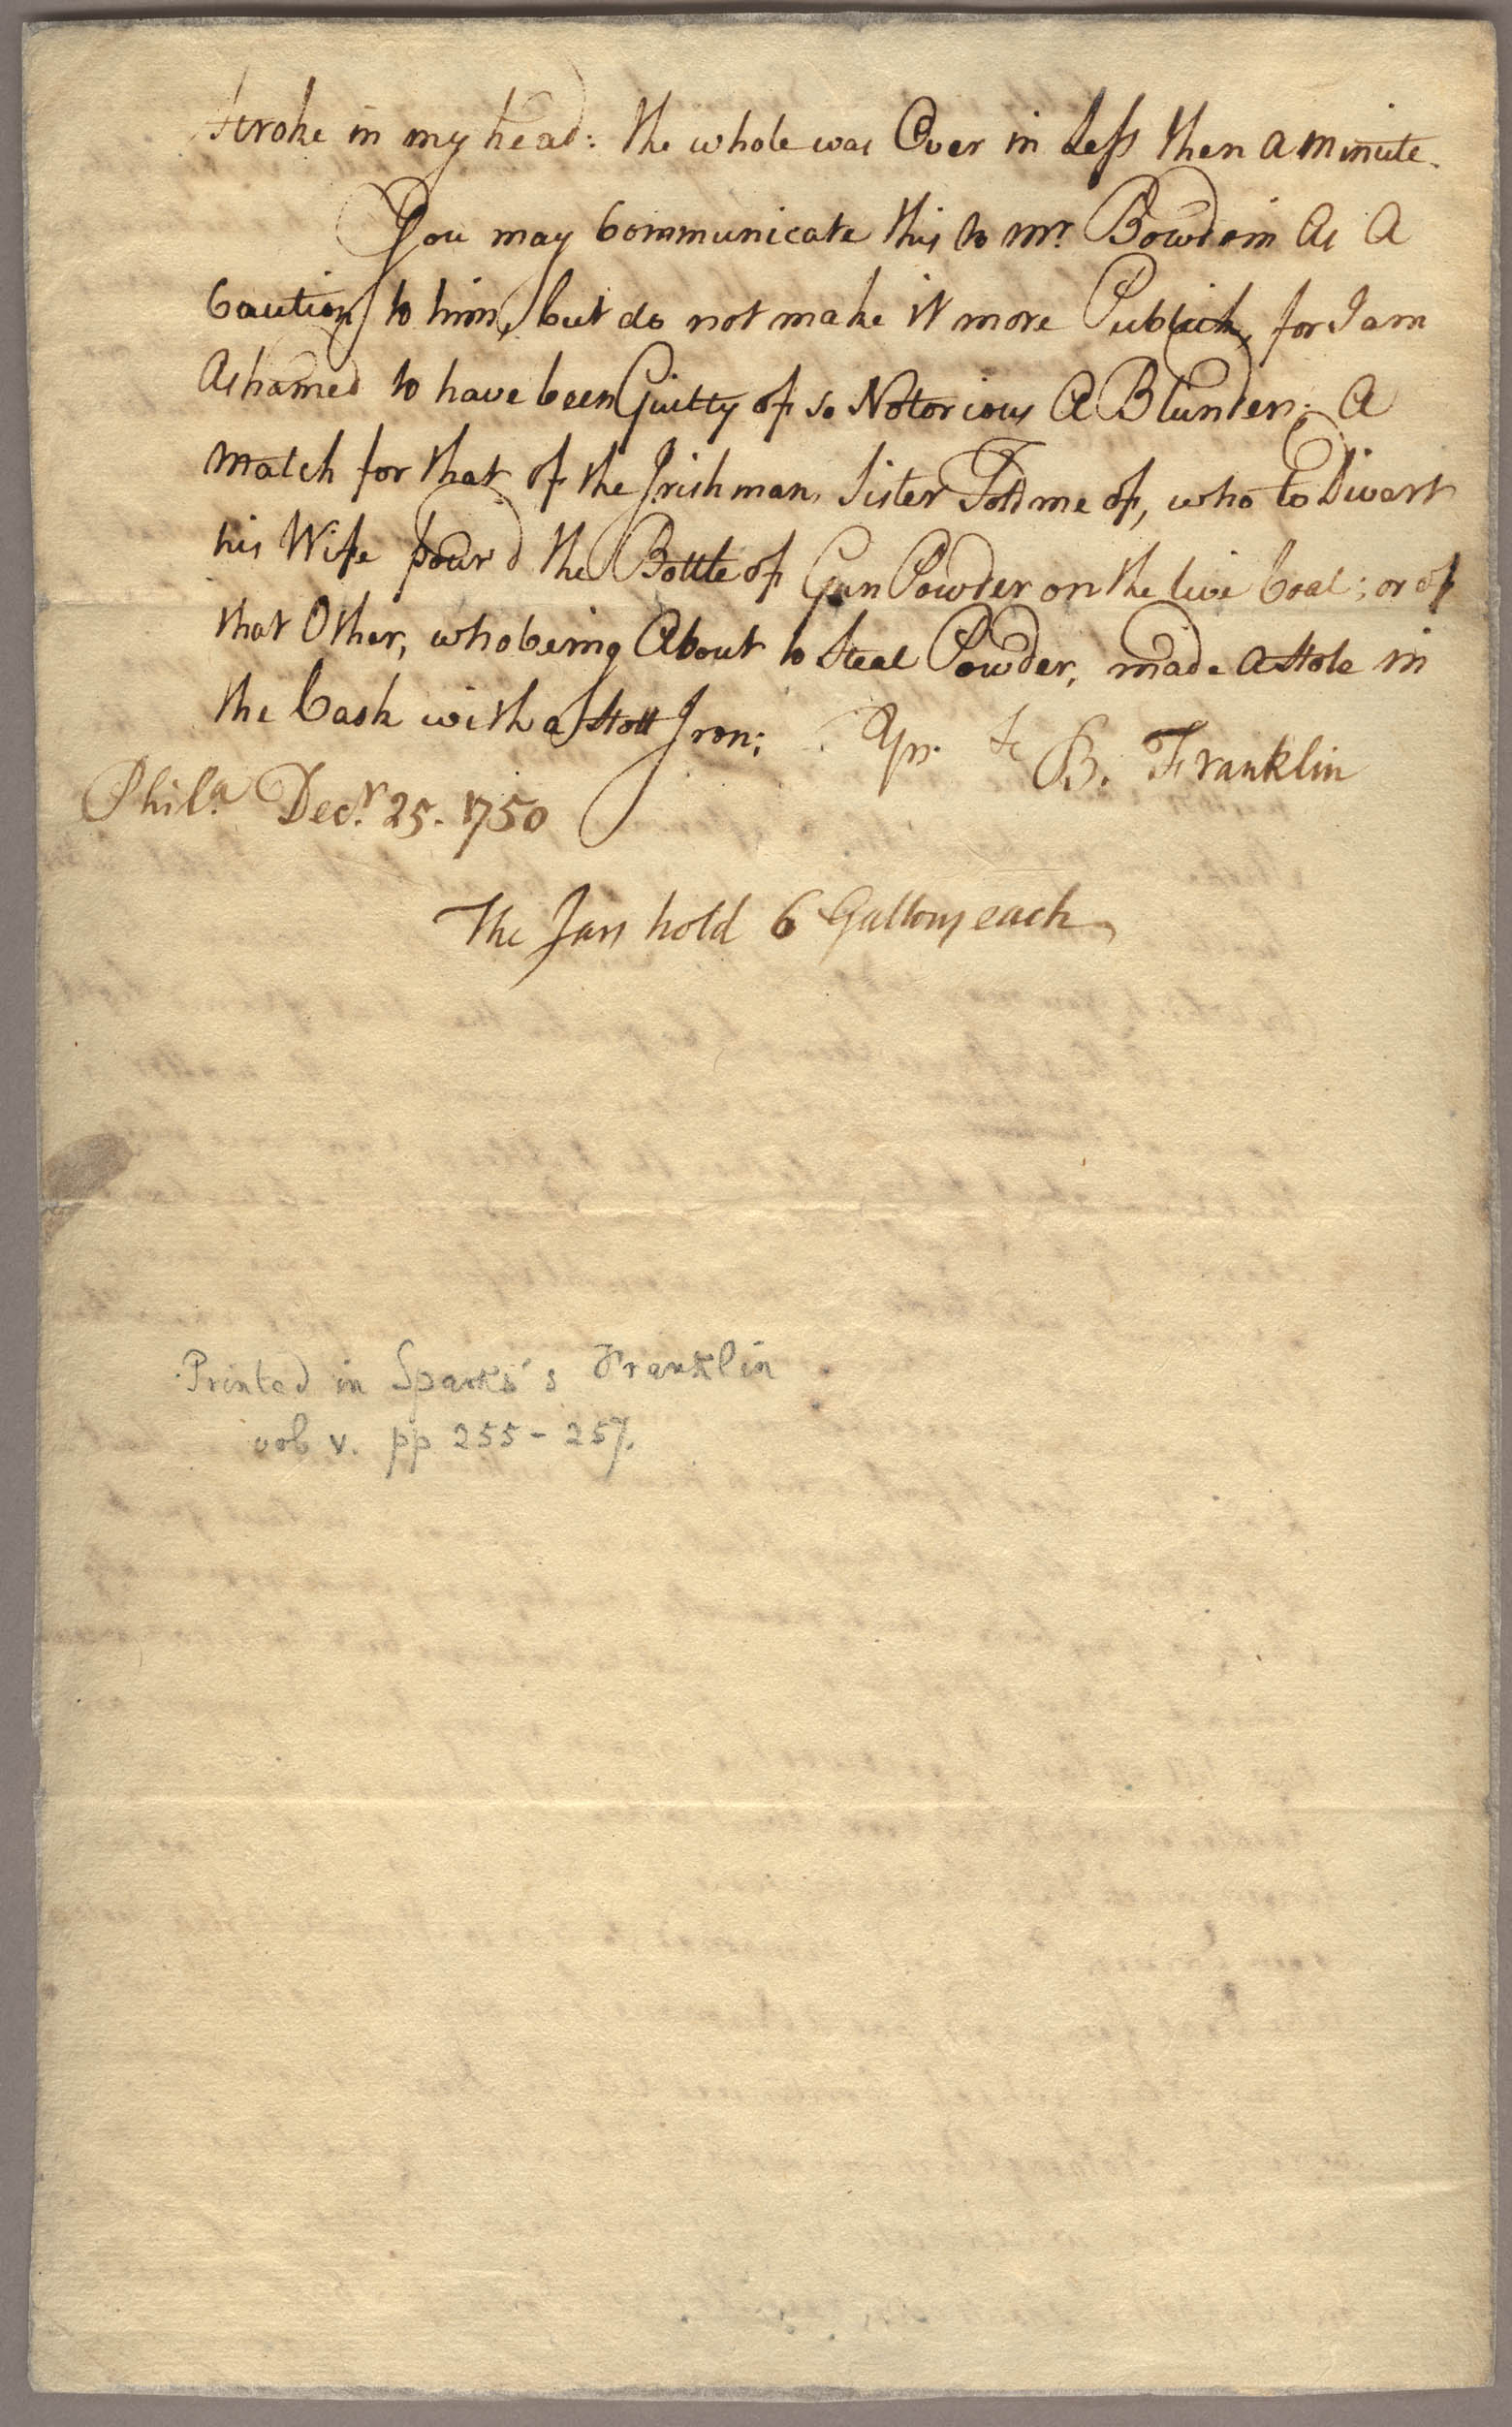 stroke in my head: the whole was Over in Less then a minute.
You may Communicate this to Mr. Bowdoin As A
Caution to him, but do not make it more Publick, for I am
Ashamed to have been Guilty of so Notorious A Blunder; A
Match for that of the Irishman, Sister Told me of, who to Divert
his Wife pour'd the Bottle of Gun Powder on the live Coal; or of
that Other, who being About to Steal Powder, made a Hole in
the Cask with a Hott Iron; Yrs. &c
B. Franklin
Phila. Decr. 25. 1750
The Jars hold 6 Gallons each
Printed in Sparks's Franklin
vol v. pp 255-257.